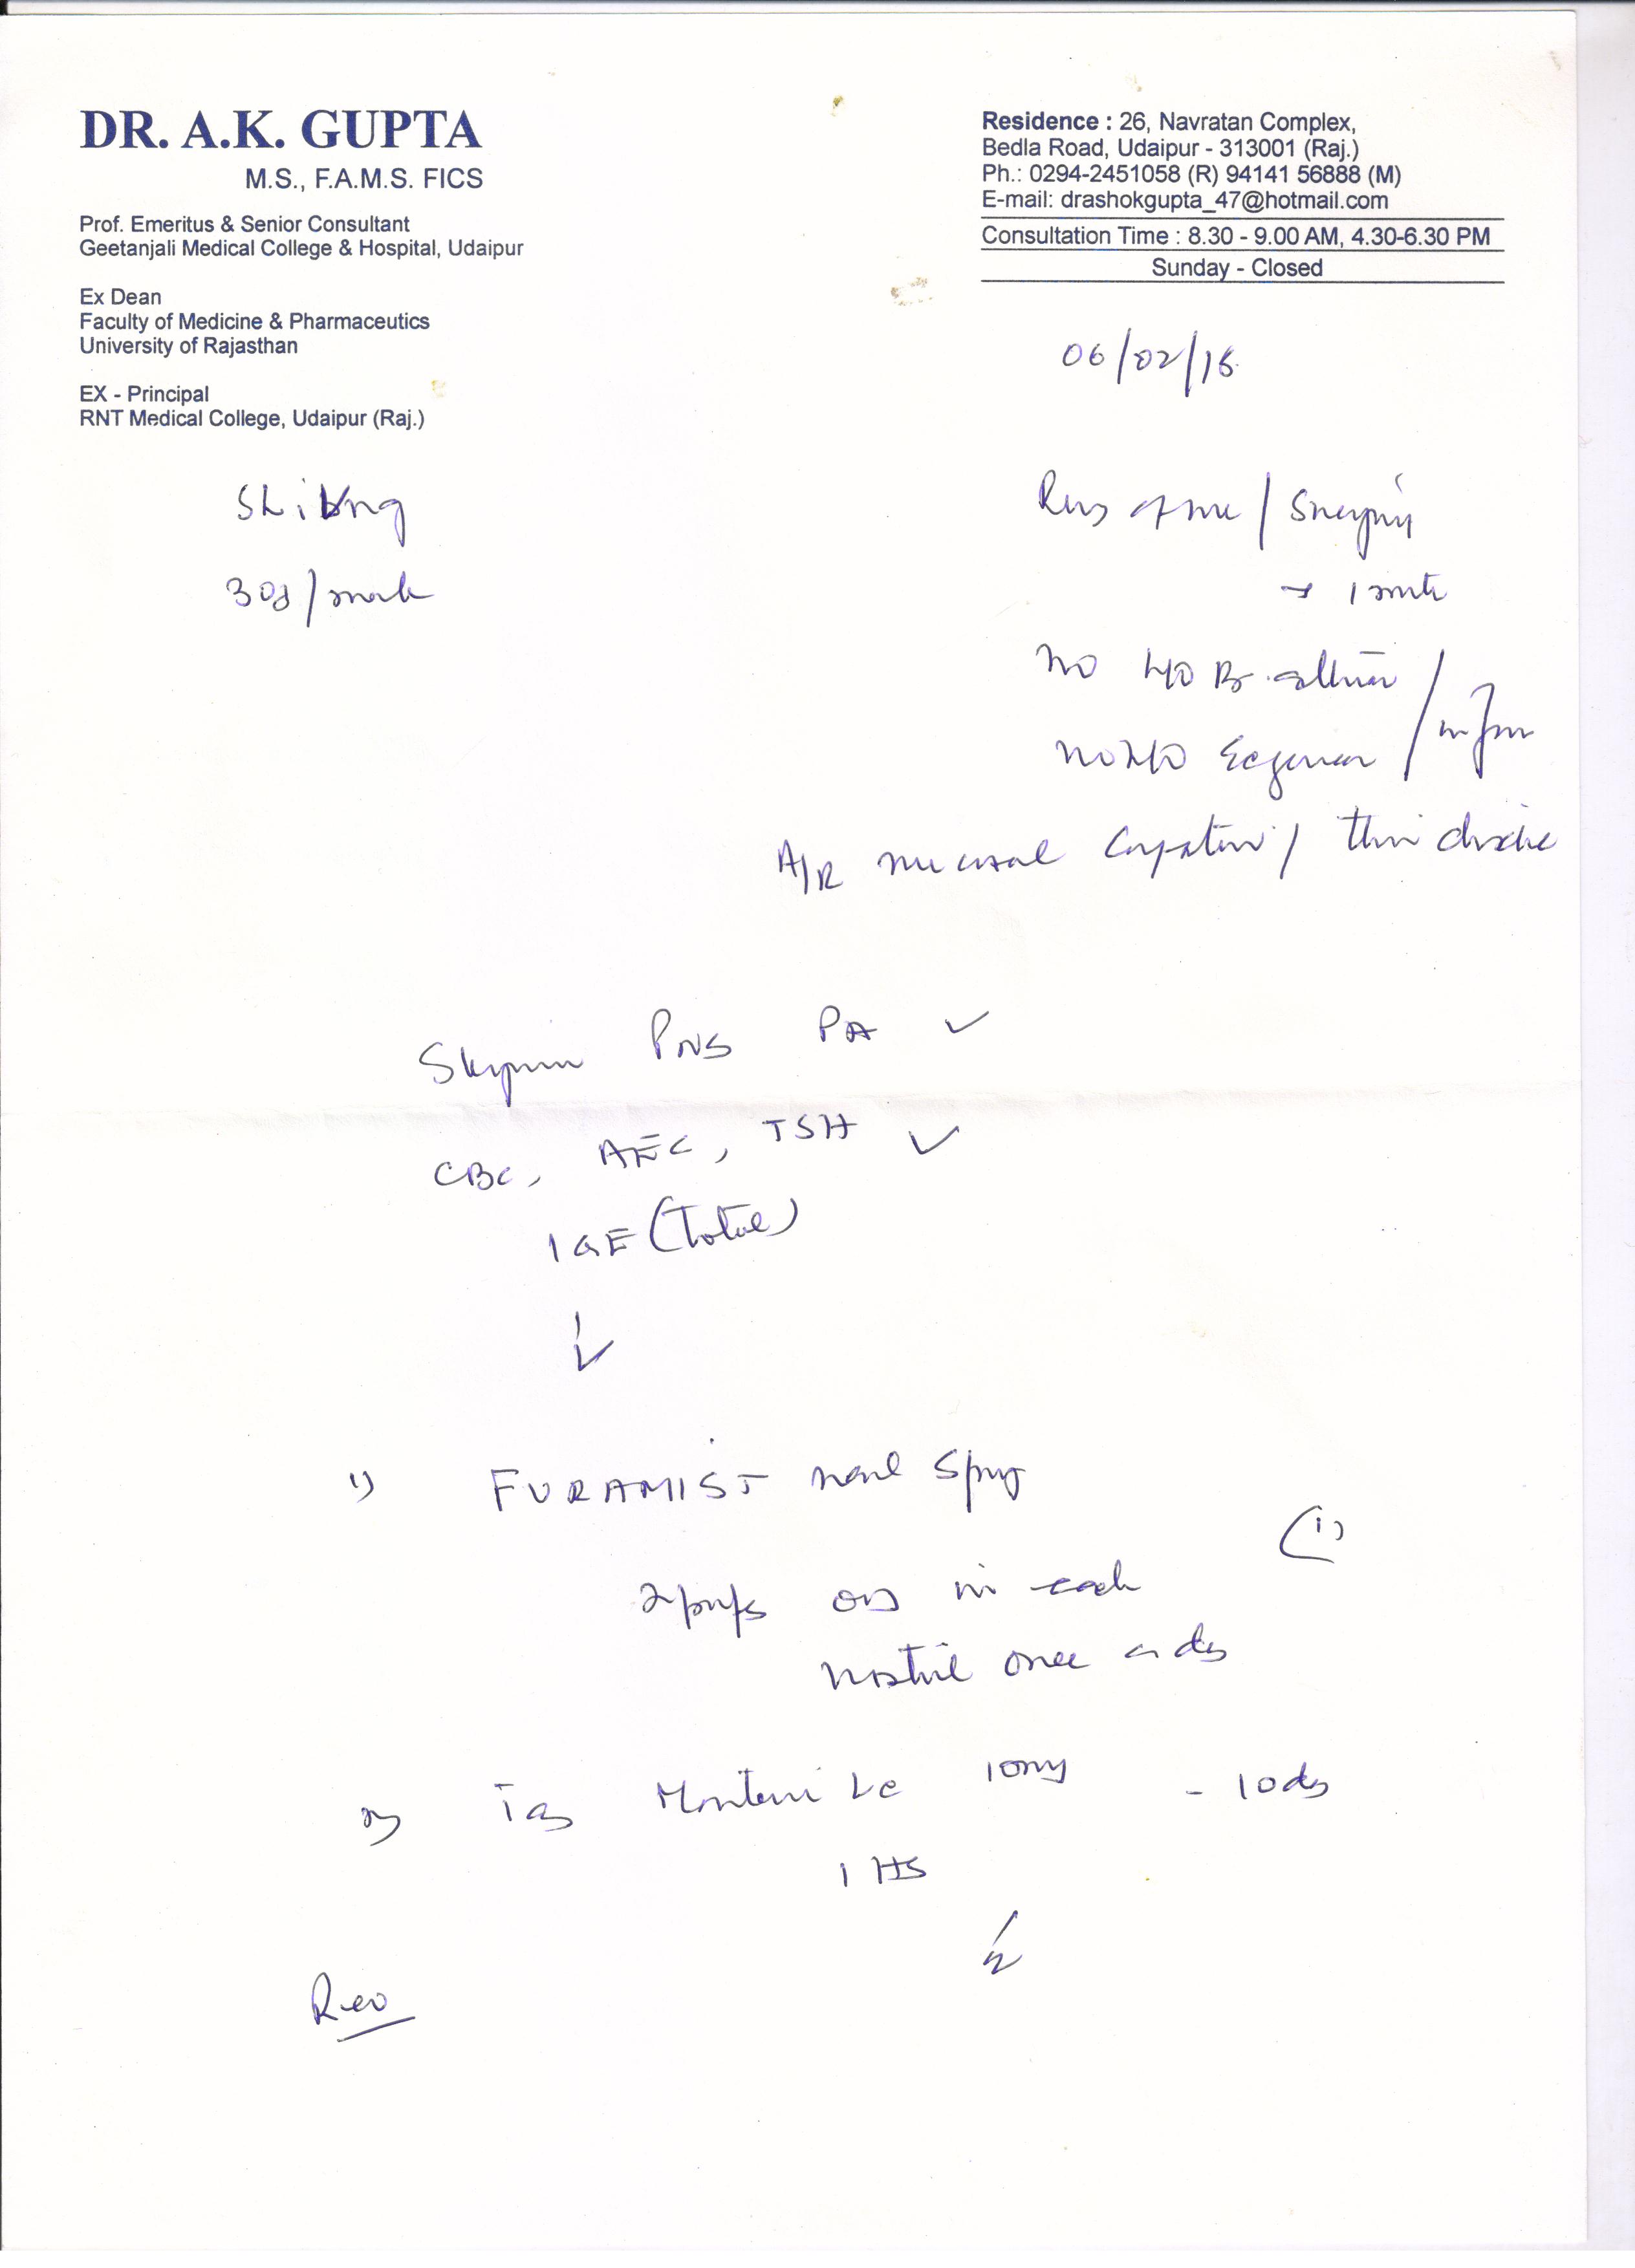 DR. A.K. GUPTA
M.S., F.A.M.S. FICS
Prof. Emeritus & Senior Consultant
Geetanjali Medical College & Hospital, Udaipur
Ex Dean
Faculty of Medicine & Pharmaceutics
University of Rajasthan
EX - Principal
RNT Medical College, Udaipur (Raj.)
Residence : 26, Navratan Complex,
Bedla Road, Udaipur - 313001 (Raj.)
Ph.: 0294-2451058 (R) 94141 56888 (M)
E-mail: drashokgupta_47@hotmail.com
Consultation Time : 8.30 - 9.00 AM, 4.30-6.30 PM
Sunday - Closed
06/02/16
/
→ 1
No H/O Br.
No H/O
A/R mucosal / thin
PNS PA ✓
CBC, AEC, TSH ✓
IGE (Total)
1) FURAMIST nasal spray
2 puffs OD in each (1)
nostril once a day
2) Tab LC 10mg - 10 days
1 HS
Rev